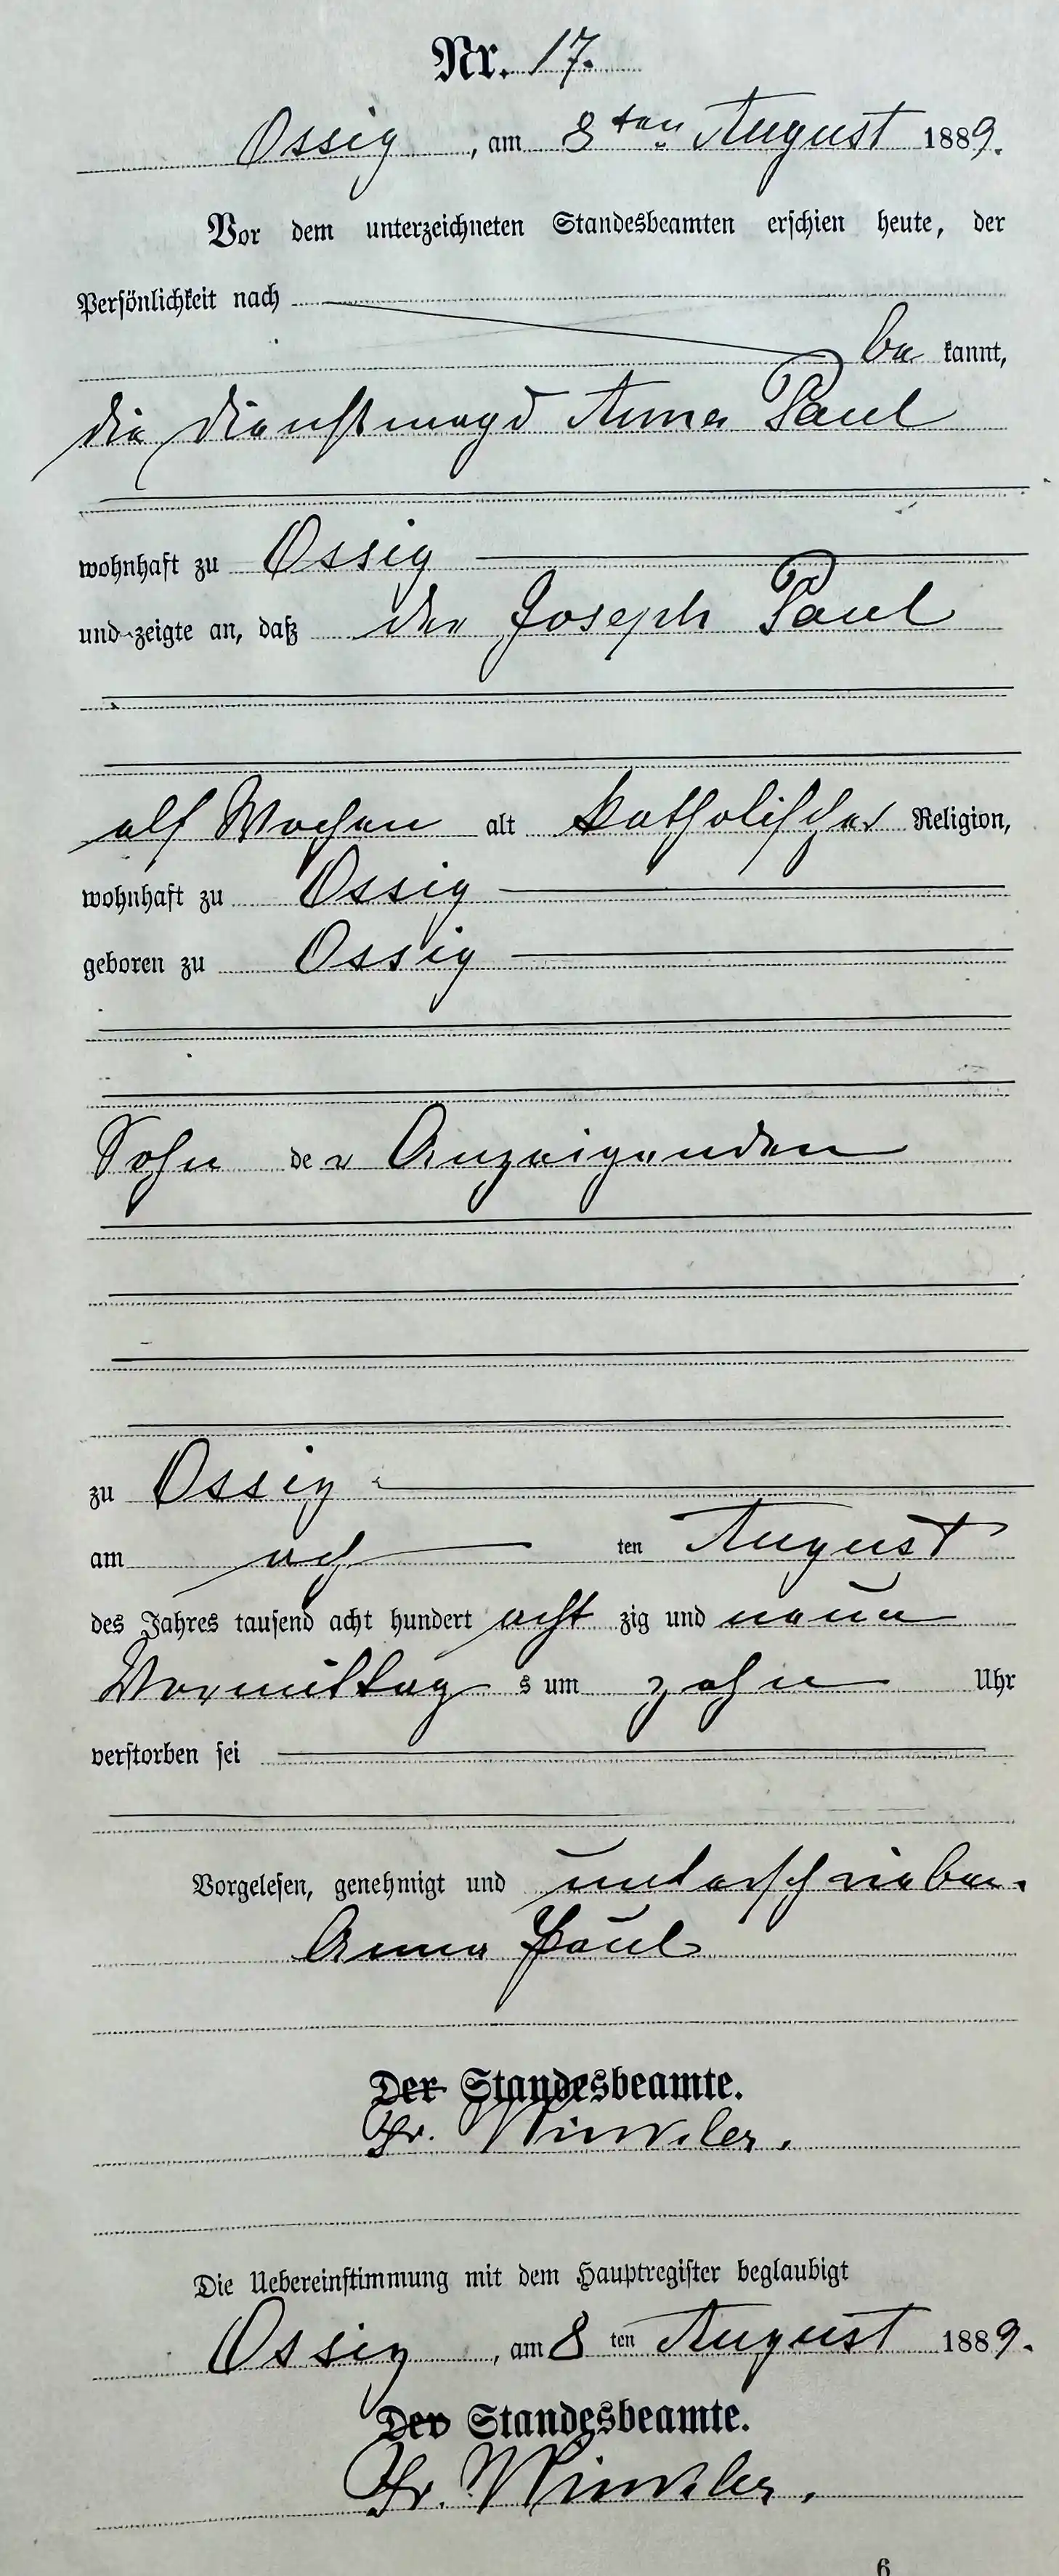 Nr. 17.
Ossig, am 8ten August 1889.
Vor dem unterzeichneten Standesbeamten erschien heute, der
Persönlichkeit nach
be kannt,
die Dienstmagd Anna Paul
wohnhaft zu Ossig
und zeigte an, daß der Joseph Paul
elf Wochen alt katholischer Religion,
wohnhaft zu Ossig
geboren zu Ossig
Sohn der Anzeigenden
zu Ossig
am ach ten August
des Jahres tausend acht hundert acht zig und neun
Vormittag s um zehn Uhr
verstorben sei
Vorgelesen, genehmigt und unterschrieben.
Anna Paul
Der Standesbeamte.
Fr. Winkler.
Die Uebereinstimmung mit dem Hauptregister beglaubigt
Ossig, am 8 ten August 1889.
Der Standesbeamte.
Fr. Winkler.
6